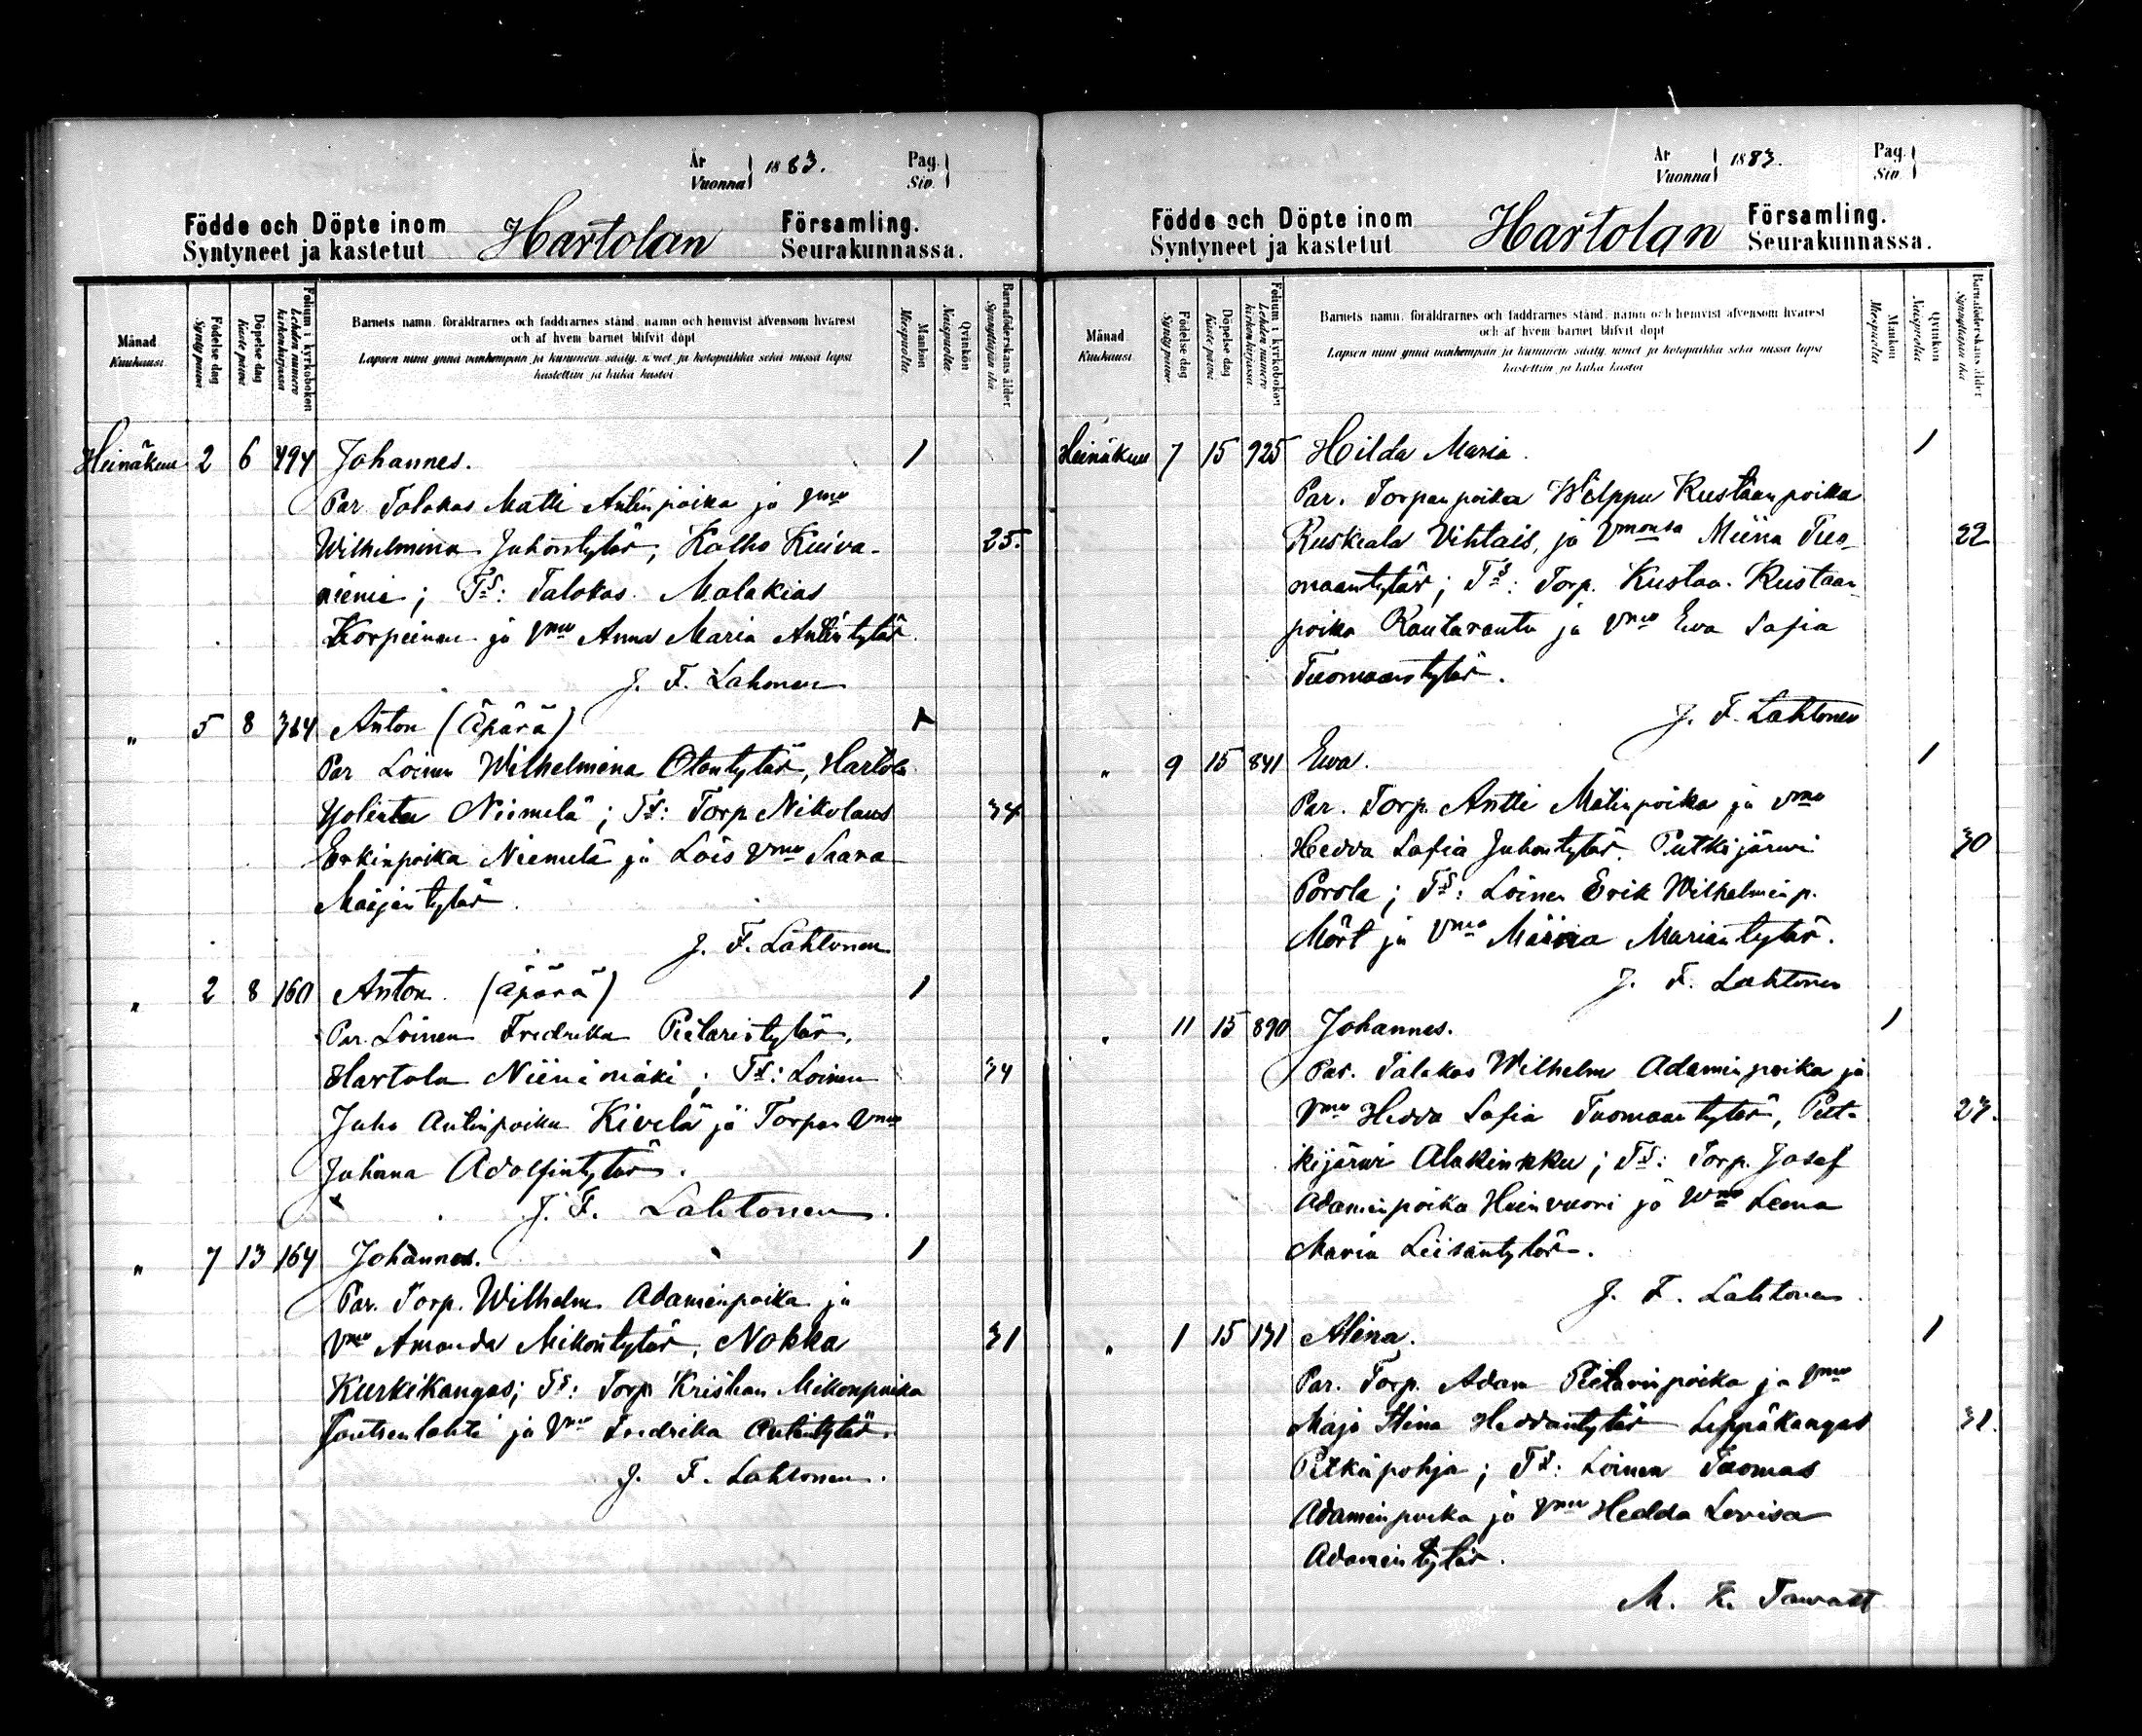 År
Vuonna 1883. Pag.
Siv.
Födde och Döpte inom Hartolan Församling.
Syntyneet ja kastetut Seurakunnassa.
Månad
Kuukausi
Födelse dag
Synty päivä
Döpelse dag
Kaste päivä
Folium i kyrkoboken
Lehden numero
kirkonkirjassa
Barnets namn, föräldrarnes och faddrarnes stånd, namn och hemvist äfvensom hvarest
och af hvem barnet blifvit döpt
Lapsen nimi ynnä vanhempain ja kummein sääty, nimet ja kotopaikka sekä missä lapsi
kastettiin ja kuka kastoi
Mankön
Miespuolta
Qvinkön
Naispuolta
Barnaföderskans ålder
Synnyttäjän ikä
Heinäkuu 2 6 494 Johannes. 1
Par Talokas Matti Antinpoika ja Vmo
Wilhelmina Juhontytär, Kalho Kuiva- 25.
niemi; Ts: Talokas Malakias
Korpeinen ja Vmo Anna Maria Antintytär.
J. F. Lahonen
" 5 8 364 Anton (Äpärä) 1
Par Loinen Wilhelmina Otontytär, Hartola
Yolinta Niemelä; Ts: Torp Nikolaus 34
Erkinpoika Niemelä ja Lois Vmo Saara
Maijantytär.
J. F. Lahtonen
" 2 8 160 Anton (äpärä) 1
Par. Loinen Fredrika Pietarintytär,
Hartola Niinimäki; Ts: Loinen 34
Juho Antinpoika Kivelä ja Torpan Vmo
Juhana Adolfintytär.
J. F. Lahtonen.
" 7 13 164 Johannes. 1
Par. Torp. Wilhelm Adaminpoika ja
Vmo Amanda Mikontytär, Nokka 31
Kurkikangas; Ts: Torp Kristian Mikonpoika
Joutsenlahti ja Vmo Fredrika Antintytär.
J. F. Lahtonen.
År
Vuonna 1883. Pag.
Siv
Födde och Döpte inom Hartolan Församling.
Syntyneet ja kastetut Seurakunnassa.
Månad
Kuukausi
Födelse dag
Synty päivä
Döpelse dag
Kaste päivä
Folium i kyrkoboken
Lehden numero
kirkonkirjassa
Barnets namn, föräldrarnes och faddrarnes stånd, namn och hemvist äfvensom hvarest
och af hvem barnet blifvit döpt
Lapsen nimi ynnä vanhempain ja kummein sääty, nimet ja kotopaikka sekä missä lapsi
kastettiin ja kuka kastoi
Mankön
Miespuolta
Qvinkön
Naispuolta
Barnaföderskans ålder
Synnyttäjän ikä
Heinäkuu 7 15 925 Hilda Maria. 1
Par. Torpanpoika Wilppu Kustaanpoika
Ruskeala Vihtais, ja Vmonsa Miina Tuo- 22
maantytär; Ts: Torp. Kustaa Kustaan-
poika Rautaranta ja Vmo Ewa Sofia
Tuomaantytär.
J. F. Lahtonen
" 9 15 841 Ewa. 1
Par. Torp. Antti Matinpoika ja Vmo
Hedda Sofia Juhontytär, Putkijärwi 30
Porola; Ts: Loinen Erik Wilhelminp.
Mört ja Vmo Maria Mariantytär.
J. F. Lahtonen
" 11 15 890 Johannes. 1
Par. Talokas Wilhelm Adaminpoika ja
Vmo Hedda Sofia Tuomaantytär, Put- 27.
kijärwi Alakinkku; Ts: Torp. Josef
Adaminpoika Heinvuori ja Wmo Leena
Maria Liisantytär.
J. F. Lahtonen.
" 1 15 131 Alina. 1
Par. Torp. Adam Pietarinpoika ja Vmo
Maja Stina Heddantytär Leppäkangas 31.
Pitkäpohja; Ts: Loinen Tuomas
Adaminpoika ja Vmo Hedda Lovisa
Adamintytär.
M. K. Tawast